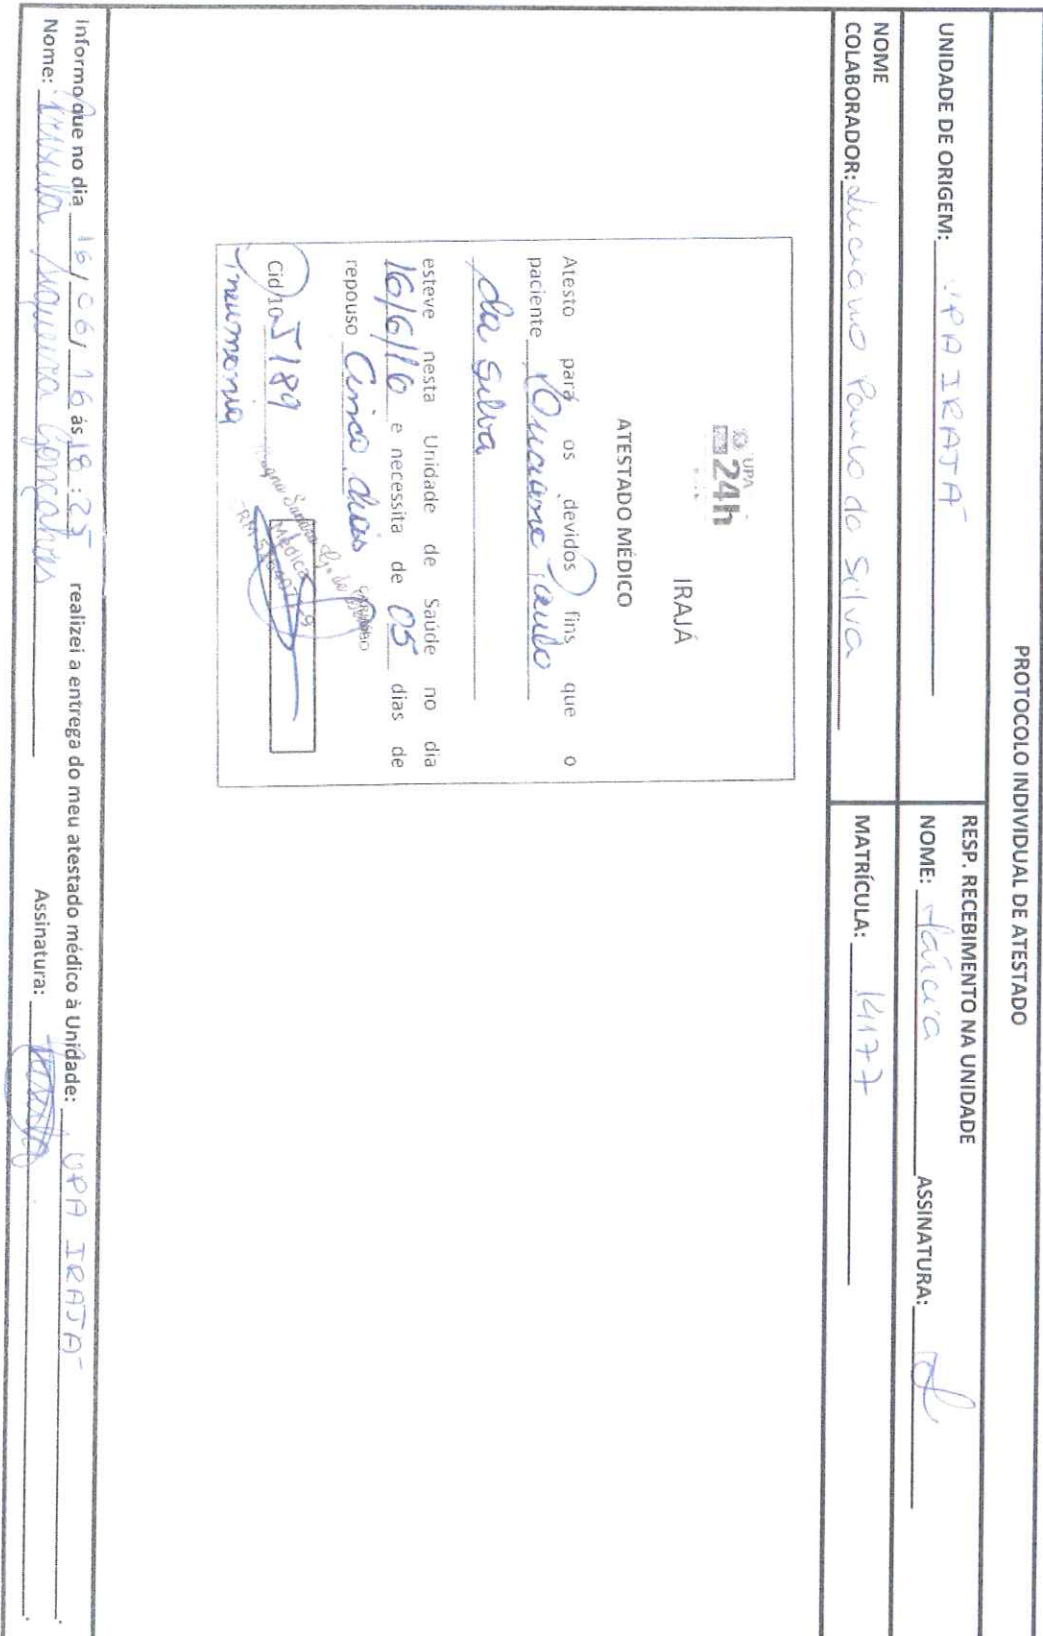 PROTOCOLO INDIVIDUAL DE ATESTADO
UNIDADE DE ORIGEM: UPA IRAJÁ
RESP. RECEBIMENTO NA UNIDADE
NOME: ASSINATURA:
NOME
COLABORADOR: Luciano Paulo da Silva
MATRÍCULA: 14177
UPA
24h
IRAJÁ
ATESTADO MÉDICO
Atesto para os devidos fins que o
paciente Luciano Paulo
da Silva
esteve nesta Unidade de Saúde no dia
16/6/16 e necessita de 05 dias de
repouso Cinco dias
Cid 10 J189
Pneumonia
Médica
Informo que no dia 16/06/16 ás 18:25 realizei a entrega do meu atestado médico à Unidade: UPA IRAJÁ.
Nome: Gonçalves Assinatura: